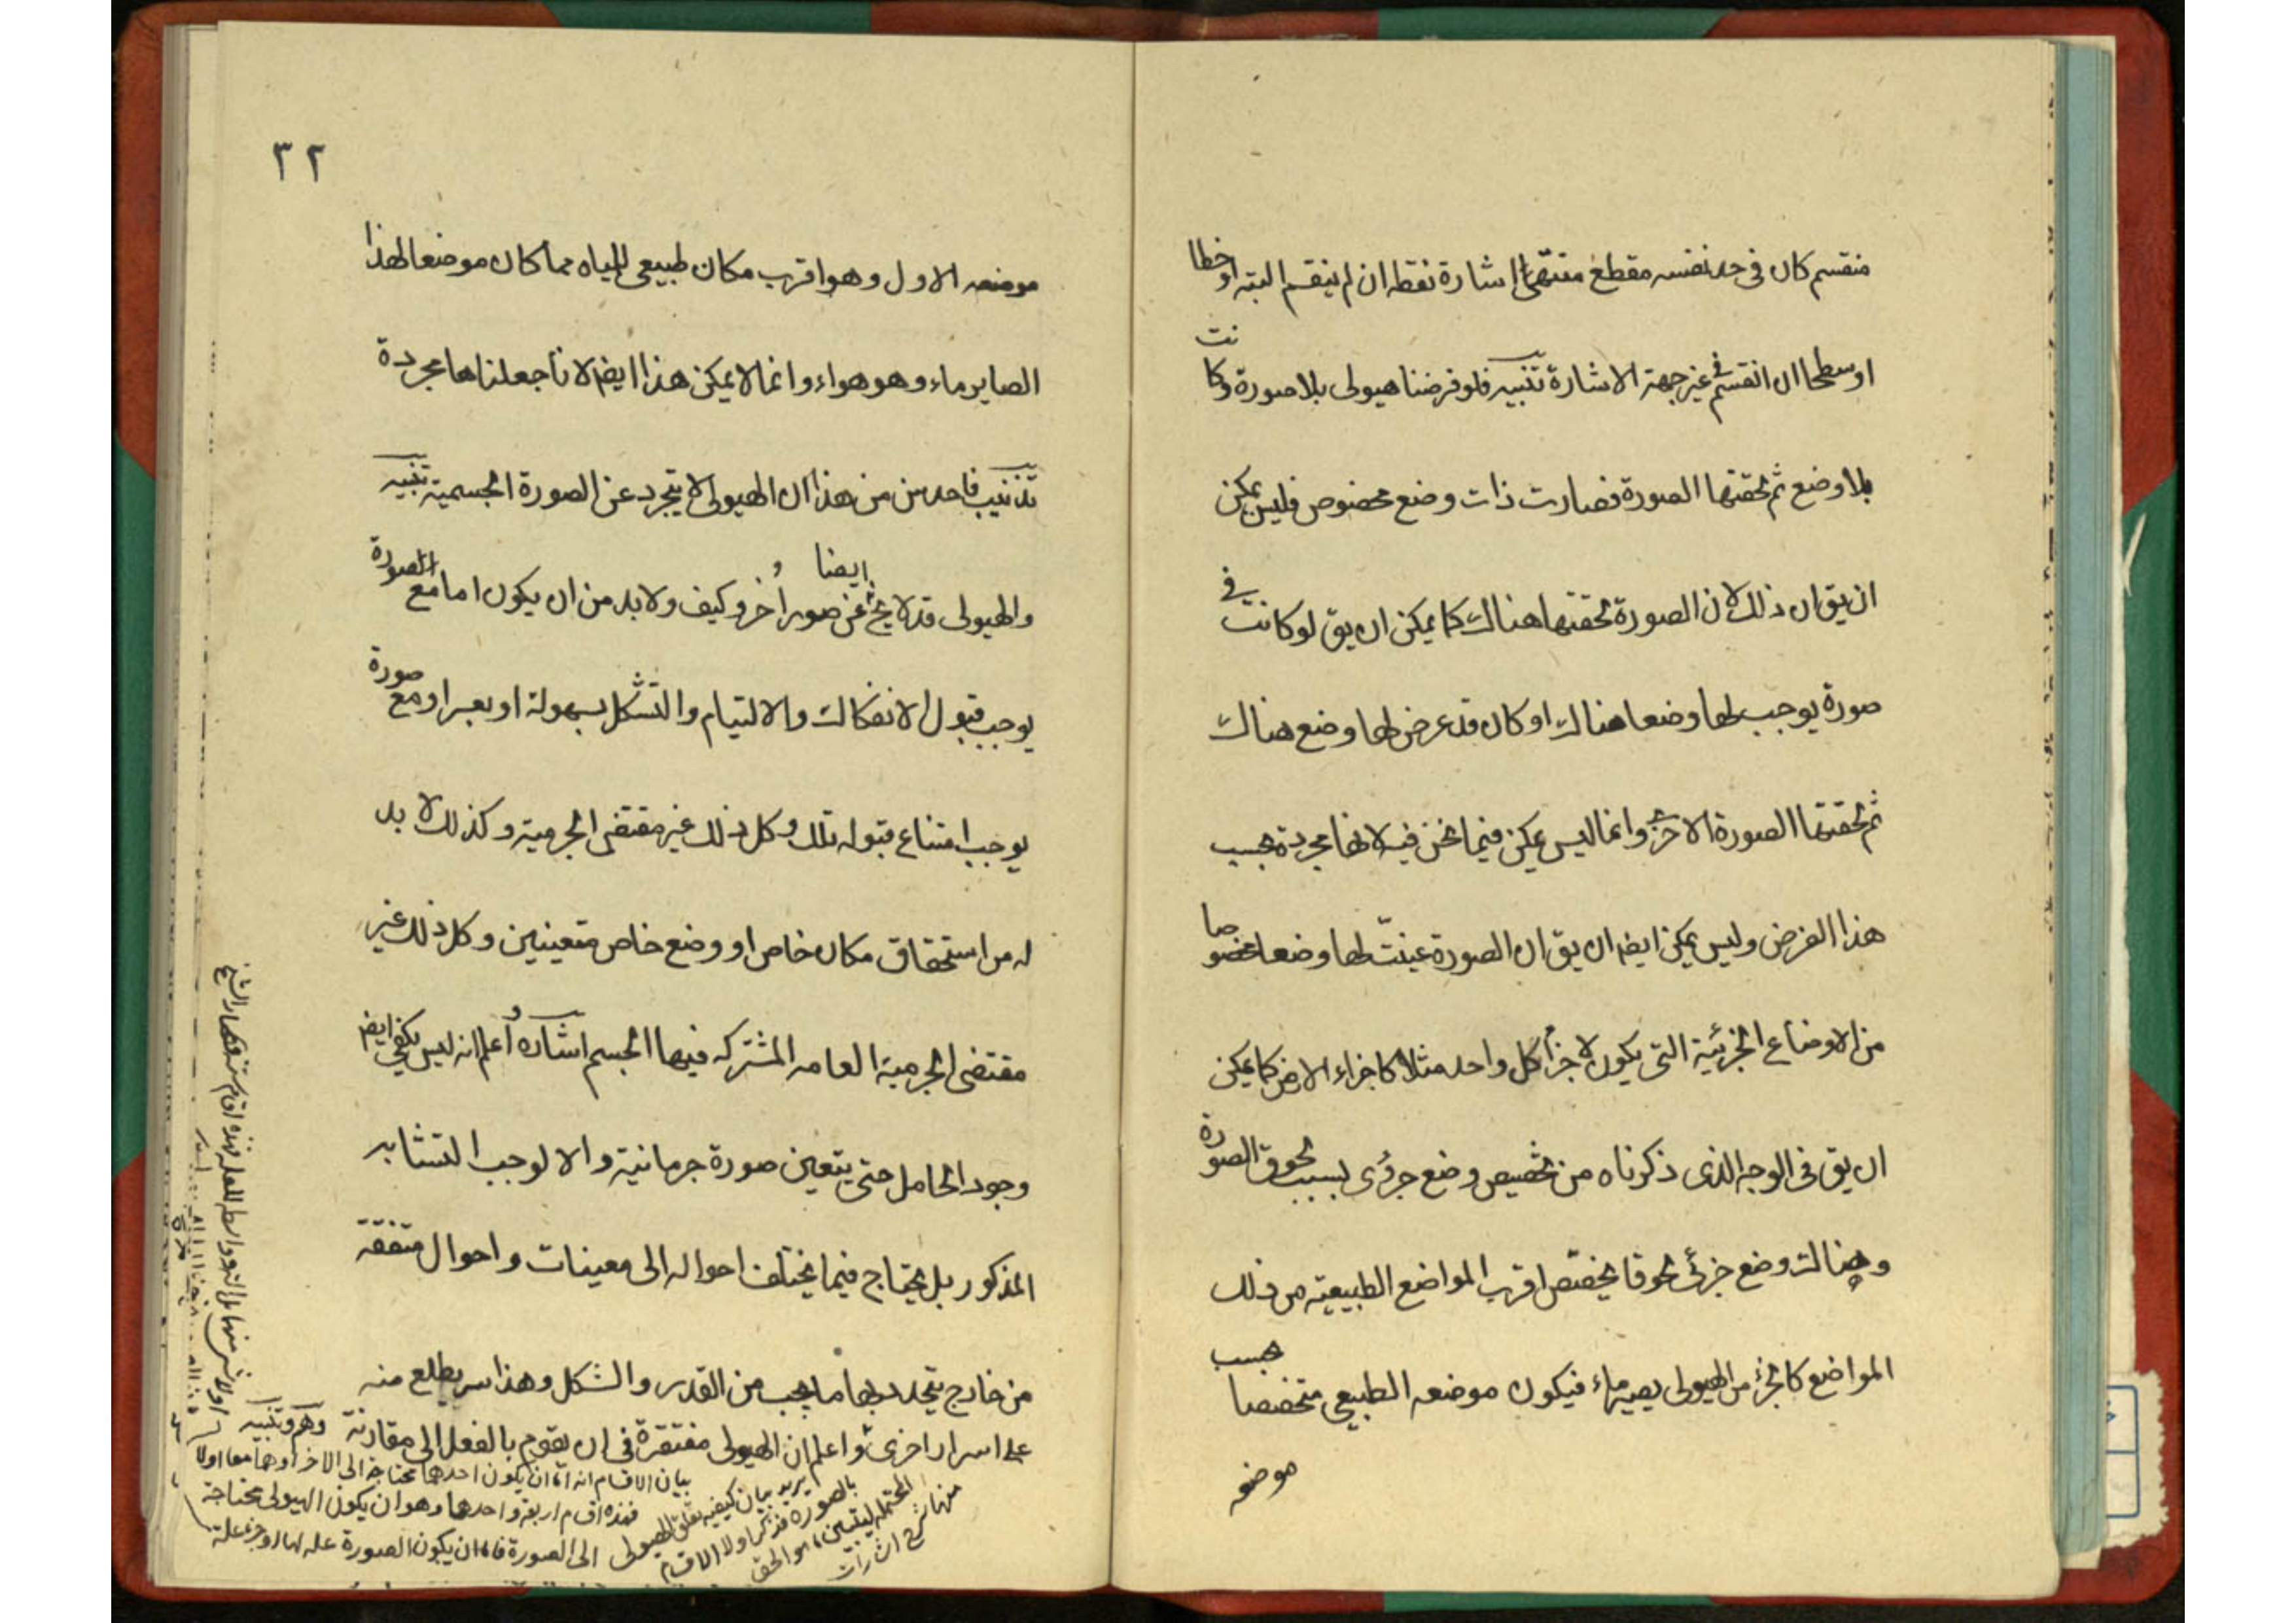 منقسم كان فى حد نفسه مقطع منتهى اشارة نقطه ان لم ينقسم البته او خطا
او سطحا ان انقسم فى غير جهة الاشارة تنبيه فلو فرضنا هيولى بلا صورة وكانت
بلا وضع ثم لحقتها الصورة فصارت ذات وضع مخصوص فليس يمكن
ان يق ان ذلك لان الصورة لحقتها هناك كما يمكن ان يق لو كانت فى
صورة يوجب لها وضعا هناك او كان قد عرض لها وضع هناك
ثم لحقتها الصورة الاخرى وانما ليس يمكن فيما نحن فيه لانها مجردة بحسب
هذا الفرض وليس يمكن ايضا ان يق ان الصورة عينت لها وضعا مخصوصا
من الاوضاع الجزئية التى يكون لاجزاء كل واحد مثلا كاجزاء الارض كما يمكن
ان يق فى الوجه الذى ذكرناه من تخصيص وضع جزئى بسبب لحوق الصورة
وهناك وضع جزئى لحوقا يخصّص اقرب المواضع الطبيعية من ذلك
المواضع كالجزء من الهيولى يصير ماء فيكون موضعه الطبيعى متخصصا بحسب
موضعه
٣٢
موضعه الاول وهو اقرب مكان طبيعى للمياه مما كان موضعا لهذا
الصاير ماء وهو هواء وانما لا يمكن هذا ايضا لانا جعلناها مجردة
تذنيب فاحدس من هذا ان الهيولى لا يتجرد عن الصورة الجسمية تنبيه
والهيولى قد لا يخ ايضا عن صور اُخر وكيف ولا بد من ان يكون اما مع الصورة
يوجب قبول الانفكاك والالتيام والتشكل بسهولة او بعسر او مع صورة
يوجب امتناع قبوله تلك وكل ذلك غير مقتضى الجرمية وكذلك لا بد
له من استحقاق مكان خاص او وضع خاص متعينين وكل ذلك غير
مقتضى الجرمية العامه المشتركه فيها الجسم اشاره واعلم انه ليس يكفى ايضا
وجود الحامل حتى يتعين صورة جرمانية والا لوجب التشابه
المذكور بل يحتاج فيما يختلف احواله الى معينات واحوال متفقة
من خارج يتحدد بها ما يجب من القدر والشكل وهذا سر يطلع منه
على اسرار اخرى واعلم ان الهيولى مفتقرة فى ان يقوم بالفعل الى مقارنة وهم وتنبيه
يريد بيان كيفيه تعلق الهيولى
بالصورة فذكر اولا الاقسام
المحتمله ليتبين ما هو الحق
منها شرح اشارات
بيان الاقسام انه اما ان يكون احدهما محتاجة الى الاخر او هما معا اولا
فهذه اقسام اربعة واحدها وهو ان يكون الهيولى محتاجة
الى الصورة فاما ان يكون الصورة علة لها او جزء علة